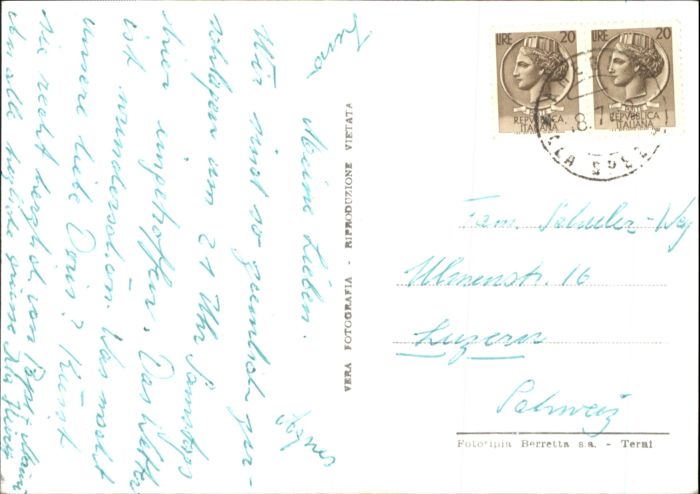 Meine Lieben.
Wir sind so ziemlich zer-
schlagen um 21 Uhr Samstags
hier eingetroffen. Das Wetter
ist wunderschön. Was macht
unsere liebe Doris? Küsst
sie recht herzlich von Papi
An alle herzliche Grüsse
Agnes
VERA FOTOGRAFIA - RIPRODUZIONE VIETATA
LIRE 20
REPVBBLICA
ITALIANA
LIRE 20
REPVBBLICA
ITALIANA
Fam. Schuler-Wey
Ulmenstr. 16
Luzern
Schweiz
Fototipia Berretta s.a. - Terni